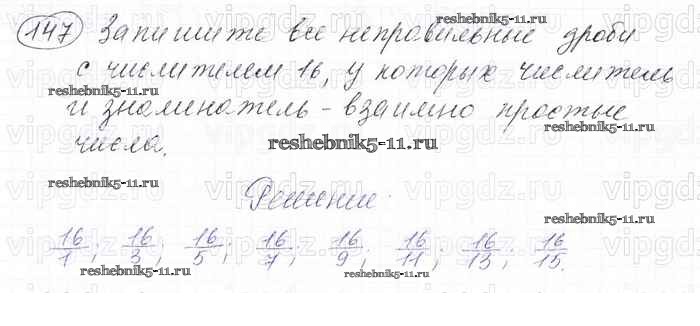 147 Запишите все неправильные дроби
с числителем 16, у которых числитель
и знаменатель - взаимно простые
числа.
Решение
16/1; 16/3; 16/5; 16/7; 16/9; 16/11; 16/13; 16/15.
reshebnik5-11.ru
reshebnik5-11.ru
reshebnik5-11.ru
reshebnik5-11.ru
reshebnik5-11.ru
reshebnik5-11.ru
reshebnik5-11.ru
reshebnik5-11.ru
reshebnik5-11.ru
vipgdz.ru